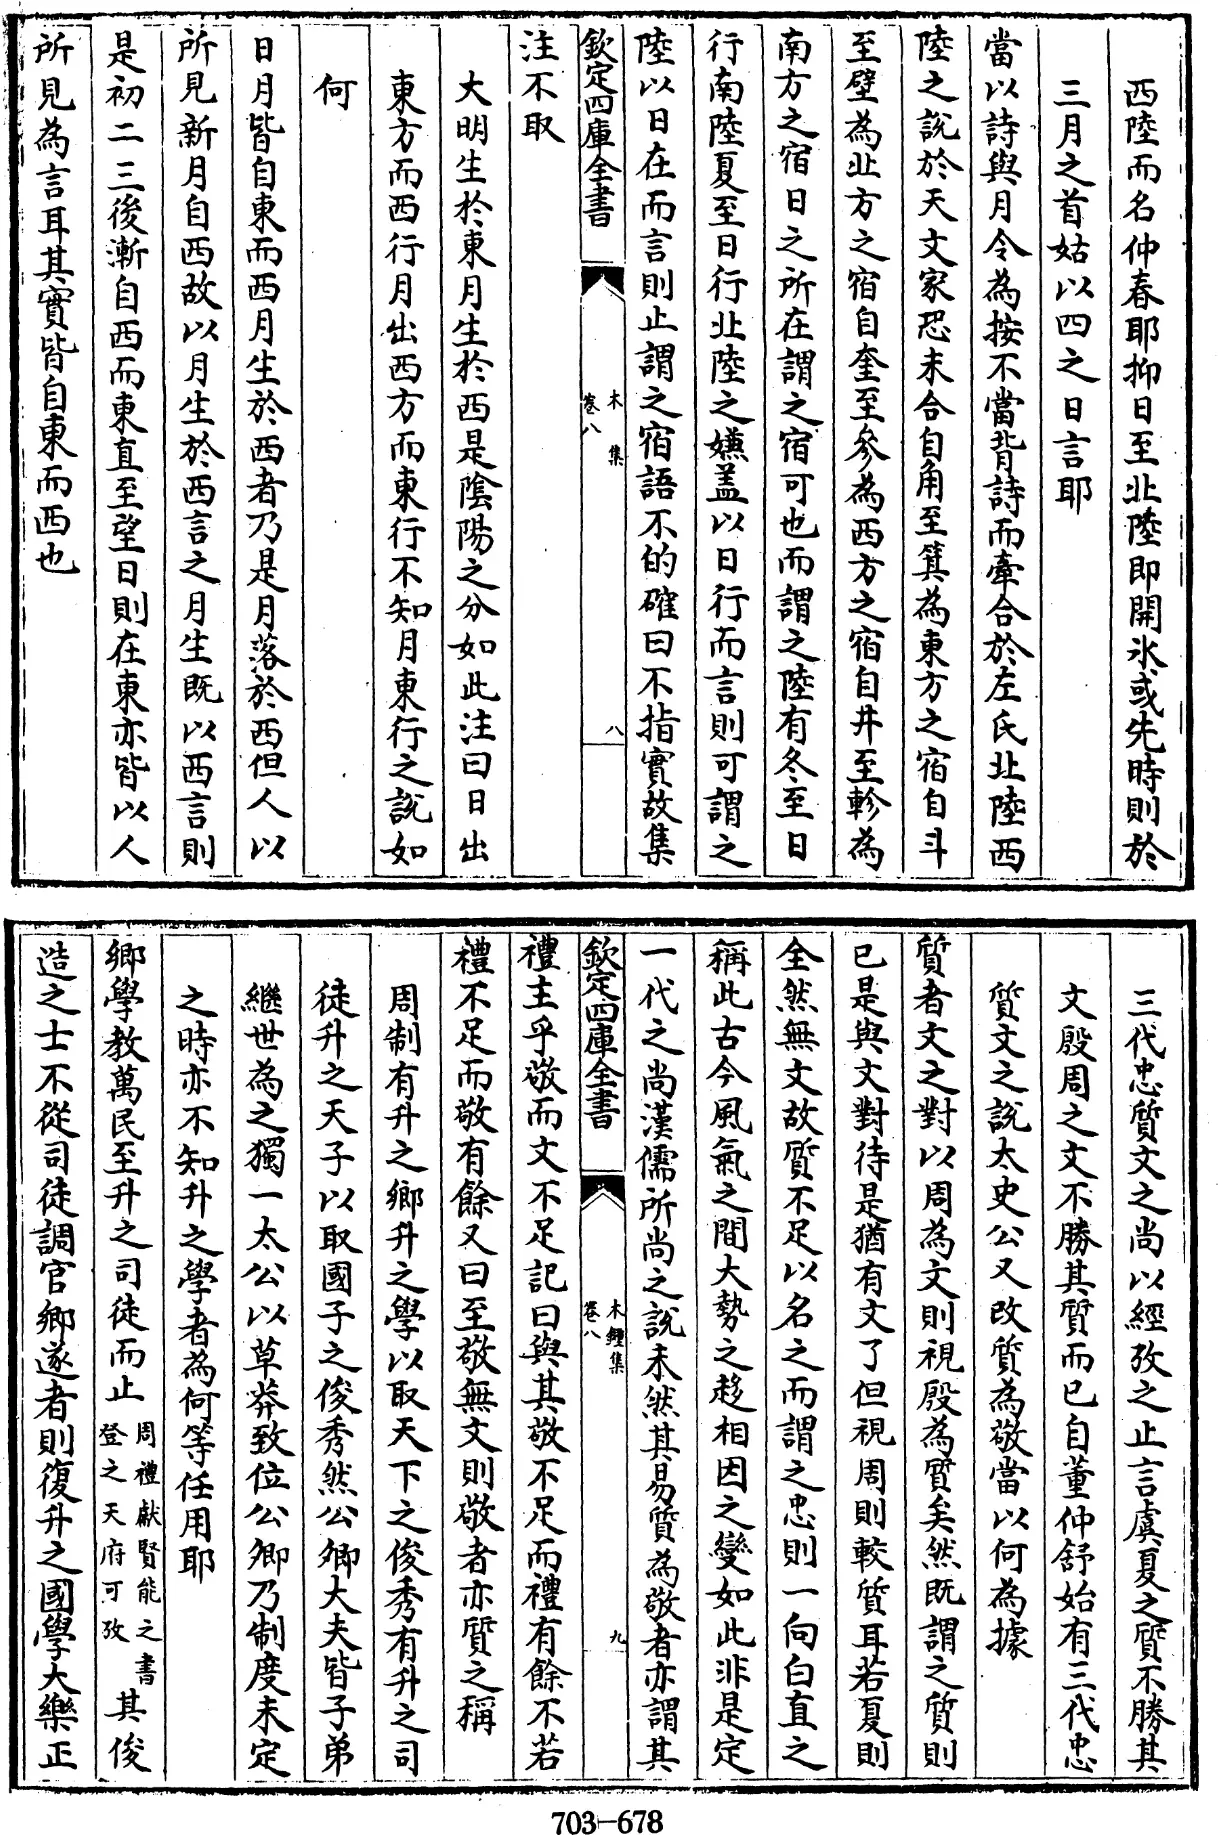 西陸而名仲春耶抑日至北陸即開氷或先時則於
三月之首姑以四之日言耶
當以詩與月令為按不當背詩而牽合於左氏北陸西
陸之說於天文家恐未合自角至箕為東方之宿自斗
至壁為北方之宿自奎至參為西方之宿自井至軫為
南方之宿日之所在謂之宿可也而謂之陸有冬至日
行南陸夏至日行北陸之嫌盖以日行而言則可謂之
陸以日在而言則止謂之宿語不的確曰不指實故集
注不取
欽定四庫全書
木集
卷八
八
大明生於東月生於西是陰陽之分如此注曰日出
東方而西行月出西方而東行不知月東行之說如
何
日月皆自東而西月生於西者乃是月落於西但人以
所見新月自西故以月生於西言之月生既以西言則
是初二三後漸自西而東直至望日則在東亦皆以人
所見為言耳其實皆自東而西也
三代忠質文之尚以經攷之止言虞夏之質不勝其
文殷周之文不勝其質而已自董仲舒始有三代忠
質文之說太史公又改質為敬當以何為據
質者文之對以周為文則視殷為質矣然既謂之質則
已是與文對待是猶有文了但視周則較質耳若夏則
全然無文故質不足以名之而謂之忠則一向白直之
稱此古今風氣之間大勢之趍相因之變如此非是定
一代之尚漢儒所尚之說未然其易質為敬者亦謂其
欽定四庫全書
木鐘集
卷八
九
禮主乎敬而文不足記曰與其敬不足而禮有餘不若
禮不足而敬有餘又曰至敬無文則敬者亦質之稱
周制有升之鄉升之學以取天下之俊秀有升之司
徒升之天子以取國子之俊秀然公卿大夫皆子弟
繼世為之獨一太公以草莽致位公卿乃制度未定
之時亦不知升之學者為何等任用耶
鄉學教萬民至升之司徒而止周禮獻賢能之書登之天府可攷其俊
造之士不從司徒調官鄉遂者則復升之國學大樂正
703-678